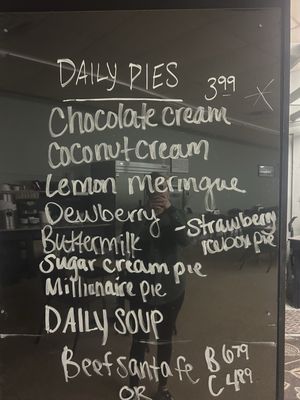 DAILY PIES 3.99
Chocolate cream
Coconut cream
Lemon Meringue
Dewberry
- Strawberry
icebox pie
Buttermilk
Sugar cream pie
Millionaire pie
DAILY SOUP
Beef santa fe B 6.79
C 4.89
OR